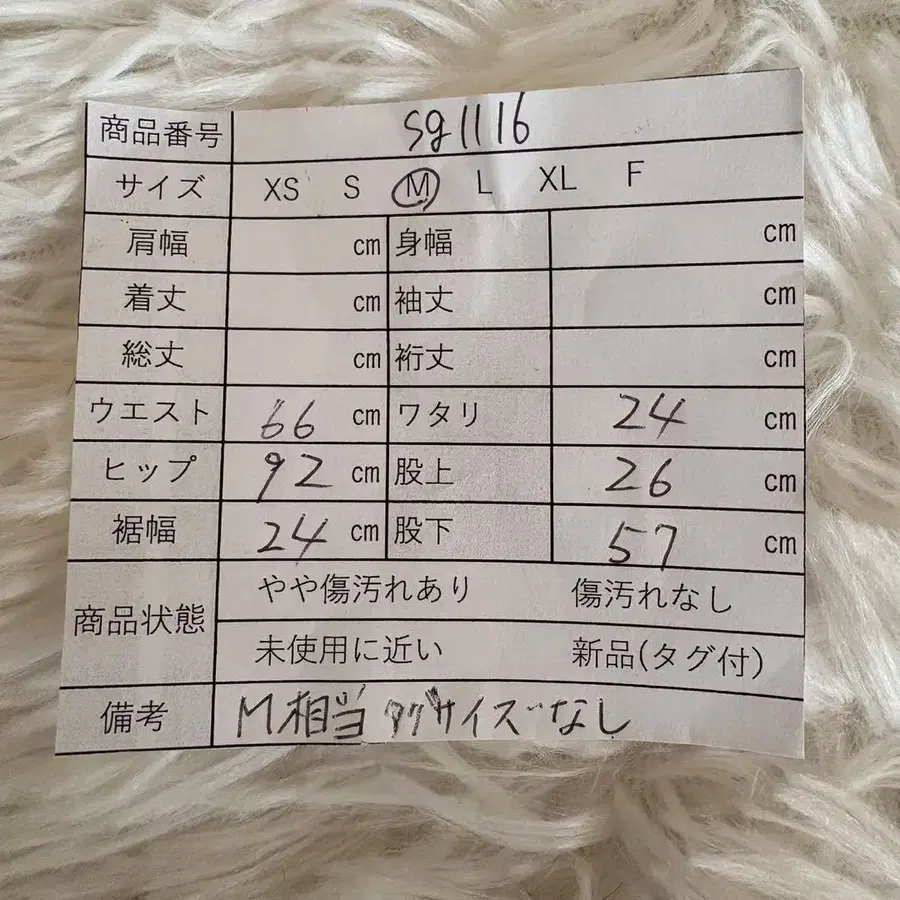 商品番号 sg1116
サイズ XS S M L XL F
肩幅 cm 身幅 cm
着丈 cm 袖丈 cm
総丈 cm 裄丈 cm
ウエスト 66 cm ワタリ 24 cm
ヒップ 92 cm 股上 26 cm
裾幅 24 cm 股下 57 cm
商品状態
やや傷汚れあり 傷汚れなし
未使用に近い 新品(タグ付)
備考 M相当 タグサイズなし